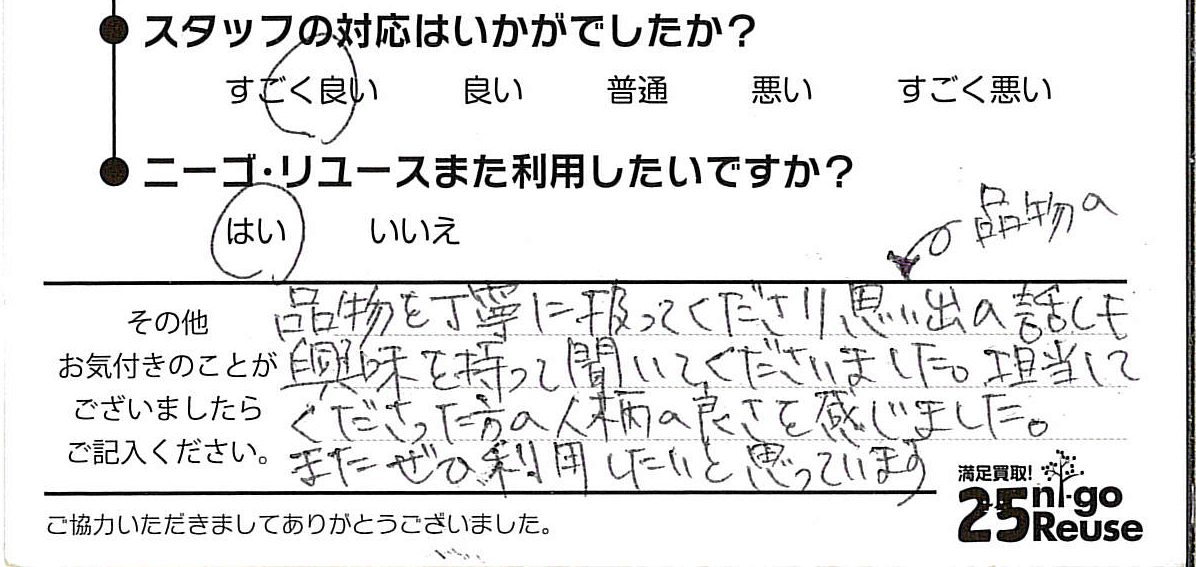 スタッフの対応はいかがでしたか?
すごく良い 良い 普通 悪い すごく悪い
ニーゴ・リユースまた利用したいですか?
はい いいえ
品物の
その他
お気付きのことが
ございましたら
ご記入ください。
品物を丁寧に扱ってくださり思い出の話しも
興味を持って聞いてくださいました。担当して
くださった方の人柄の良さを感じました。
またぜひ利用したいと思っています
満足買取!
25 ni-go
Reuse
ご協力いただきましてありがとうございました。